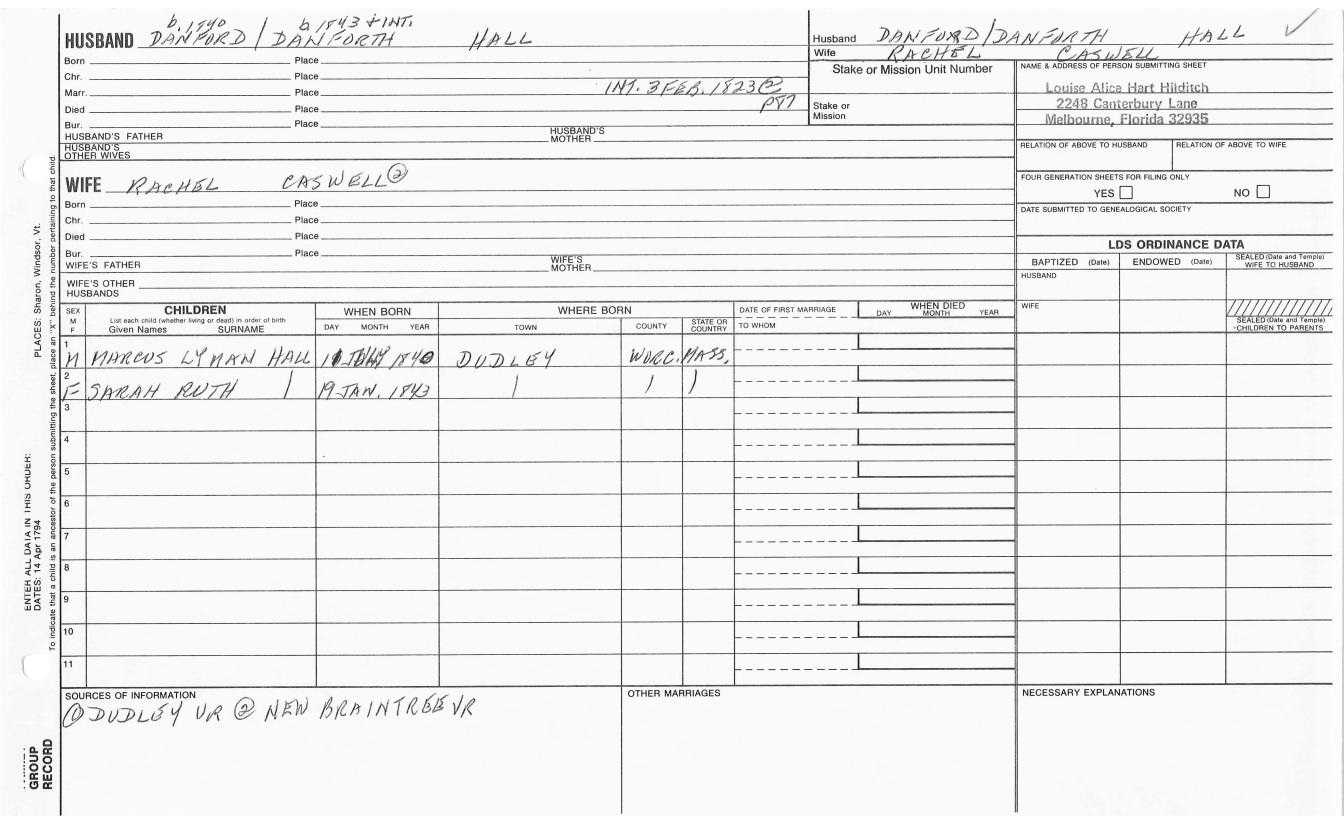 b. 1840 b. 1843 & INT.
HUSBAND DANFORD / DANFORTH HALL
Born Place
Chr. Place
Marr. Place INT. 3 FEB. 1823 ②
P87
Died Place
Bur. Place
HUSBAND'S FATHER HUSBAND'S MOTHER
HUSBAND'S OTHER WIVES
Husband DANFORD/DANFORTH HALL ✓
Wife RACHEL CASWELL
Stake or Mission Unit Number
Stake or Mission
NAME & ADDRESS OF PERSON SUBMITTING SHEET
Louise Alice Hart Hilditch
2248 Canterbury Lane
Melbourne, Florida 32935
RELATION OF ABOVE TO HUSBAND RELATION OF ABOVE TO WIFE
FOUR GENERATION SHEETS FOR FILING ONLY
YES NO
DATE SUBMITTED TO GENEALOGICAL SOCIETY
WIFE RACHEL CASWELL ②
Born Place
Chr. Place
Died Place
Bur. Place
WIFE'S FATHER WIFE'S MOTHER
WIFE'S OTHER HUSBANDS
LDS ORDINANCE DATA
BAPTIZED (Date) ENDOWED (Date) SEALED (Date and Temple) WIFE TO HUSBAND
HUSBAND
WIFE
SEALED (Date and Temple) CHILDREN TO PARENTS
SEX M F
CHILDREN
List each child (whether living or dead) in order of birth
Given Names SURNAME
WHEN BORN
DAY MONTH YEAR
WHERE BORN
TOWN COUNTY STATE OR COUNTRY
DATE OF FIRST MARRIAGE
TO WHOM
WHEN DIED
DAY MONTH YEAR
1 M MARCUS LYMAN HALL JULY 1840 DUDLEY WORC. MASS.
2 F SARAH RUTH 19 JAN. 1843
3
4
5
6
7
8
9
10
11
SOURCES OF INFORMATION
① DUDLEY VR ② NEW BRAINTREE VR
OTHER MARRIAGES
NECESSARY EXPLANATIONS
PLACES: Sharon, Windsor, Vt.
ENTER ALL DATA IN THIS ORDER:
DATES: 14 Apr 1794
To indicate that a child is an ancestor of the person submitting the sheet, place an "X" behind the number pertaining to that child.
GROUP
RECORD